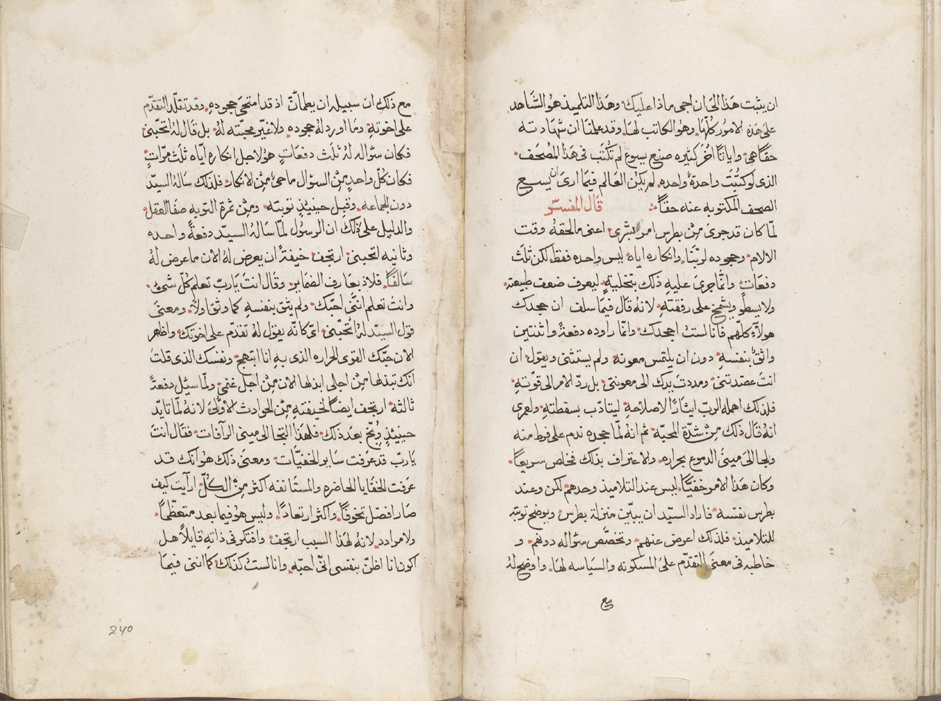 ان يثبت هذا الى ان اجى ماذا عليك وهذا التلميذ هو الشاهد
على هذه الامور كلها وهو الكاتب لها وقد علمنا ان شهادته
حقا هى واياتا اخر كثيره صنع يسوع لم تكتب فى هذا المصحف
الذى لو كتبت واحدة واحده لم يكن العالم فيما ارى ان يسع
الصحف المكتوبه عنه حقا قال المفسر
لما كان قد جرى من بطرس امر بشرى اعنى ما لحقه وقت
الالام وجحوده لربنا وانكاره اياه ليس واحده فقط لكن ثلث
دفعات وانما جرى عليه ذلك بتخليه ليعرف ضعف طبيعته
ولا يسطو ويشمخ على رفقته لانه قال فيما سلف ان جحدك
هولاء كلهم فانا لست اجحدك وانما راوده دفعة واثنتين
واثق بنفسه دون ان يلتمس معونه ولم يستثنى ويقول ان
انت عضدتنى ومددت يدك الى معونتى بل رد الامر الى قوته
فلذلك اهمله الرب ايثارا لاصلاحه ليتادب بسقطته ولعمرى
انه قال ذلك من شدة المحبه ثم انه لما جحده ندم على فرط منه
ولجا الى مينى الدموع بحراره والاعتراف بذلك فخلص سريعا
وكان هذا الامر خفيا ليس عند التلاميذ وحدهم لكن وعند
بطرس نفسه فاراد السيد ان يبين منزلة بطرس ويوضح توبته
للتلاميذ فلذلك اعرض عنهم وتخصص سؤاله دونهم و
خاطبه فى معنى التقدم على المسكونه والسياسه لها واوضح له
مع ذلك ان سبيله ان يطمان اذ قد امتحى جحوده وقد تقلد التقدم
على اخوته وما اورد له جحوده ولا غير محبته له بل قال له اتحبنى
فكان سؤاله له ثلث دفعات هو لاجل انكاره اياه ثلث مرات
فكان كل واحد من السؤال ماحى من الانكار فلذلك ساله السيد
دون الجماعه وقبل حينيذ توبته ومن ثمرة التوبه صفا العقل
والدليل على ذلك ان الرسول لما ساله السيد دفعة واحده
وثانيه اتحبنى ارتجف خيفة ان يعرض له الان ما عرض له
سالفا فلاذ بعارف الضماير وقال انت يارب تعلم كل شى
وانت تعلم اننى احبك ولم يثق بنفسه كما وثق اولا ومعنى
قول السيد له اتحبنى اى كانه يقول له تقدم على اخوتك واظهر
الان حبك القوى الحراره الذى به انا ابتهج ونفسك الذى قلت
انك تبذلها من اجلى ابذلها الان من اجل غنمى ولما سيل دفعة
ثالثة ارتجف ايضا لخيفته من الحوادث الاولى لانه لما تايد
حينيذ وبخ بعد ذلك فلهذا التجا الى مينى الرافات فقال انت
يارب قد عرفت ساير الخفيات ومعنى ذلك هو انك قد
عرفت الخفايا الحاضره والمستانفه اكثر من الكل ارايت كيف
صار افضل تخوفا واكثر ارتعادا وليس هو فيما بعد متعظما
ولا مرادد لانه لهذا السبب ارتجف وافتكر فى ذاته قايلا هل
اكون انا اظن بنفسى انى احبه وانا لست كذلك كما اننى فيما
240